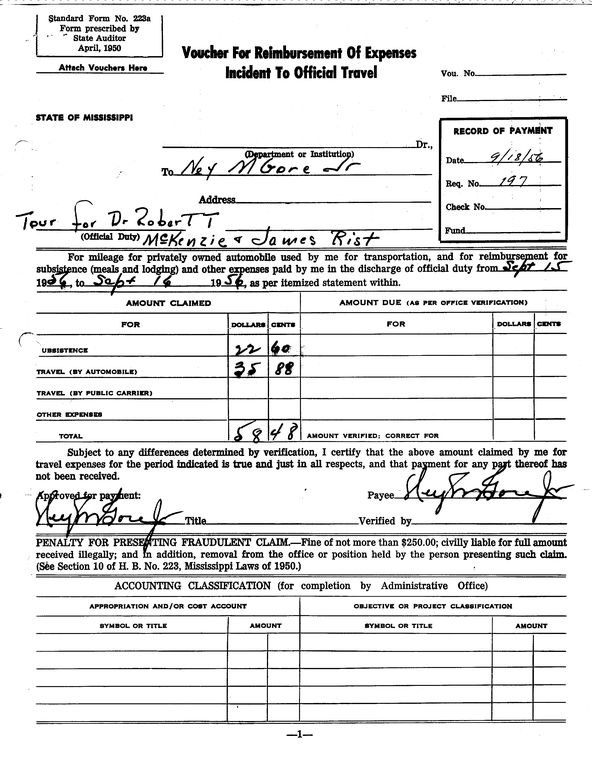 Standard Form No. 223a
Form prescribed by
State Auditor
April, 1950
Attach Vouchers Here
Voucher For Reimbursement Of Expenses
Incident To Official Travel
Vou. No.
File
STATE OF MISSISSIPPI
Dr.,
(Department or Institution)
To Ney M Gore Jr
Address
Tour for Dr Robert T
(Official Duty) McKenzie & James Rist
RECORD OF PAYMENT
Date 9/18/56
Req. No. 197
Check No.
Fund
For mileage for privately owned automobile used by me for transportation, and for reimbursement for
subsistence (meals and lodging) and other expenses paid by me in the discharge of official duty from Sept 15
1956, to Sept 16 1956, as per itemized statement within.
AMOUNT CLAIMED AMOUNT DUE (AS PER OFFICE VERIFICATION)
FOR DOLLARS CENTS FOR DOLLARS CENTS
UBSISTENCE 22 60
TRAVEL (BY AUTOMOBILE) 35 88
TRAVEL (BY PUBLIC CARRIER)
OTHER EXPENSES
TOTAL 58 48 AMOUNT VERIFIED; CORRECT FOR
Subject to any differences determined by verification, I certify that the above amount claimed by me for
travel expenses for the period indicated is true and just in all respects, and that payment for any part thereof has
not been received.
Approved for payment: Payee Ney M Gore Jr
Ney M Gore Jr Title Verified by
PENALTY FOR PRESENTING FRAUDULENT CLAIM.—Fine of not more than $250.00; civilly liable for full amount
received illegally; and in addition, removal from the office or position held by the person presenting such claim.
(See Section 10 of H. B. No. 223, Mississippi Laws of 1950.)
ACCOUNTING CLASSIFICATION (for completion by Administrative Office)
APPROPRIATION AND/OR COST ACCOUNT OBJECTIVE OR PROJECT CLASSIFICATION
SYMBOL OR TITLE AMOUNT SYMBOL OR TITLE AMOUNT
—1—